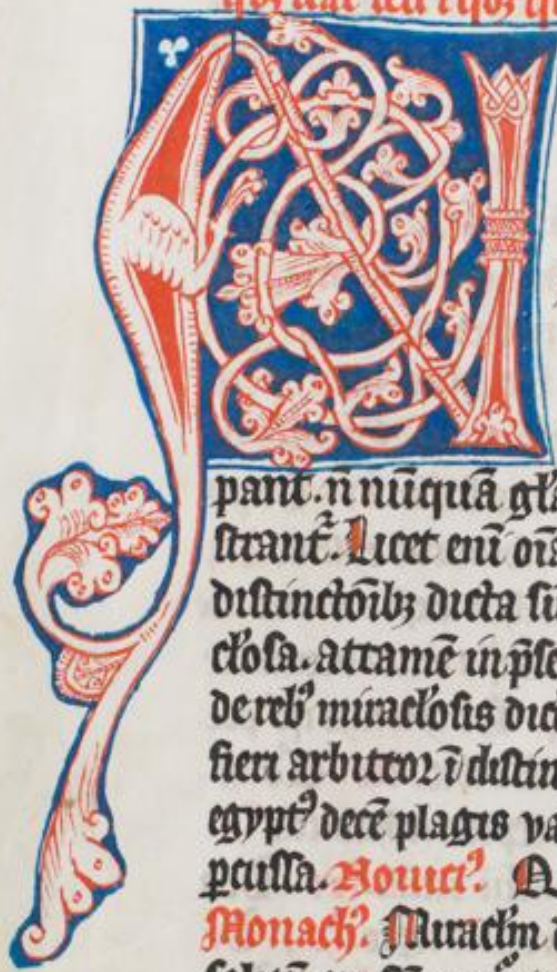 N
pant. n̄ nūquā gl̄
strant᷑. Licet enī oīa
distinctōibꝫ dicta si
cl̓osa. attamē in p̄se
de rebꝰ miracl̓osis dic
fieri arbitror ī distin
egyptꝰ decē plagis va
ꝑcussa. Nouiciꝰ. N
Monachꝰ. Miracl̄m